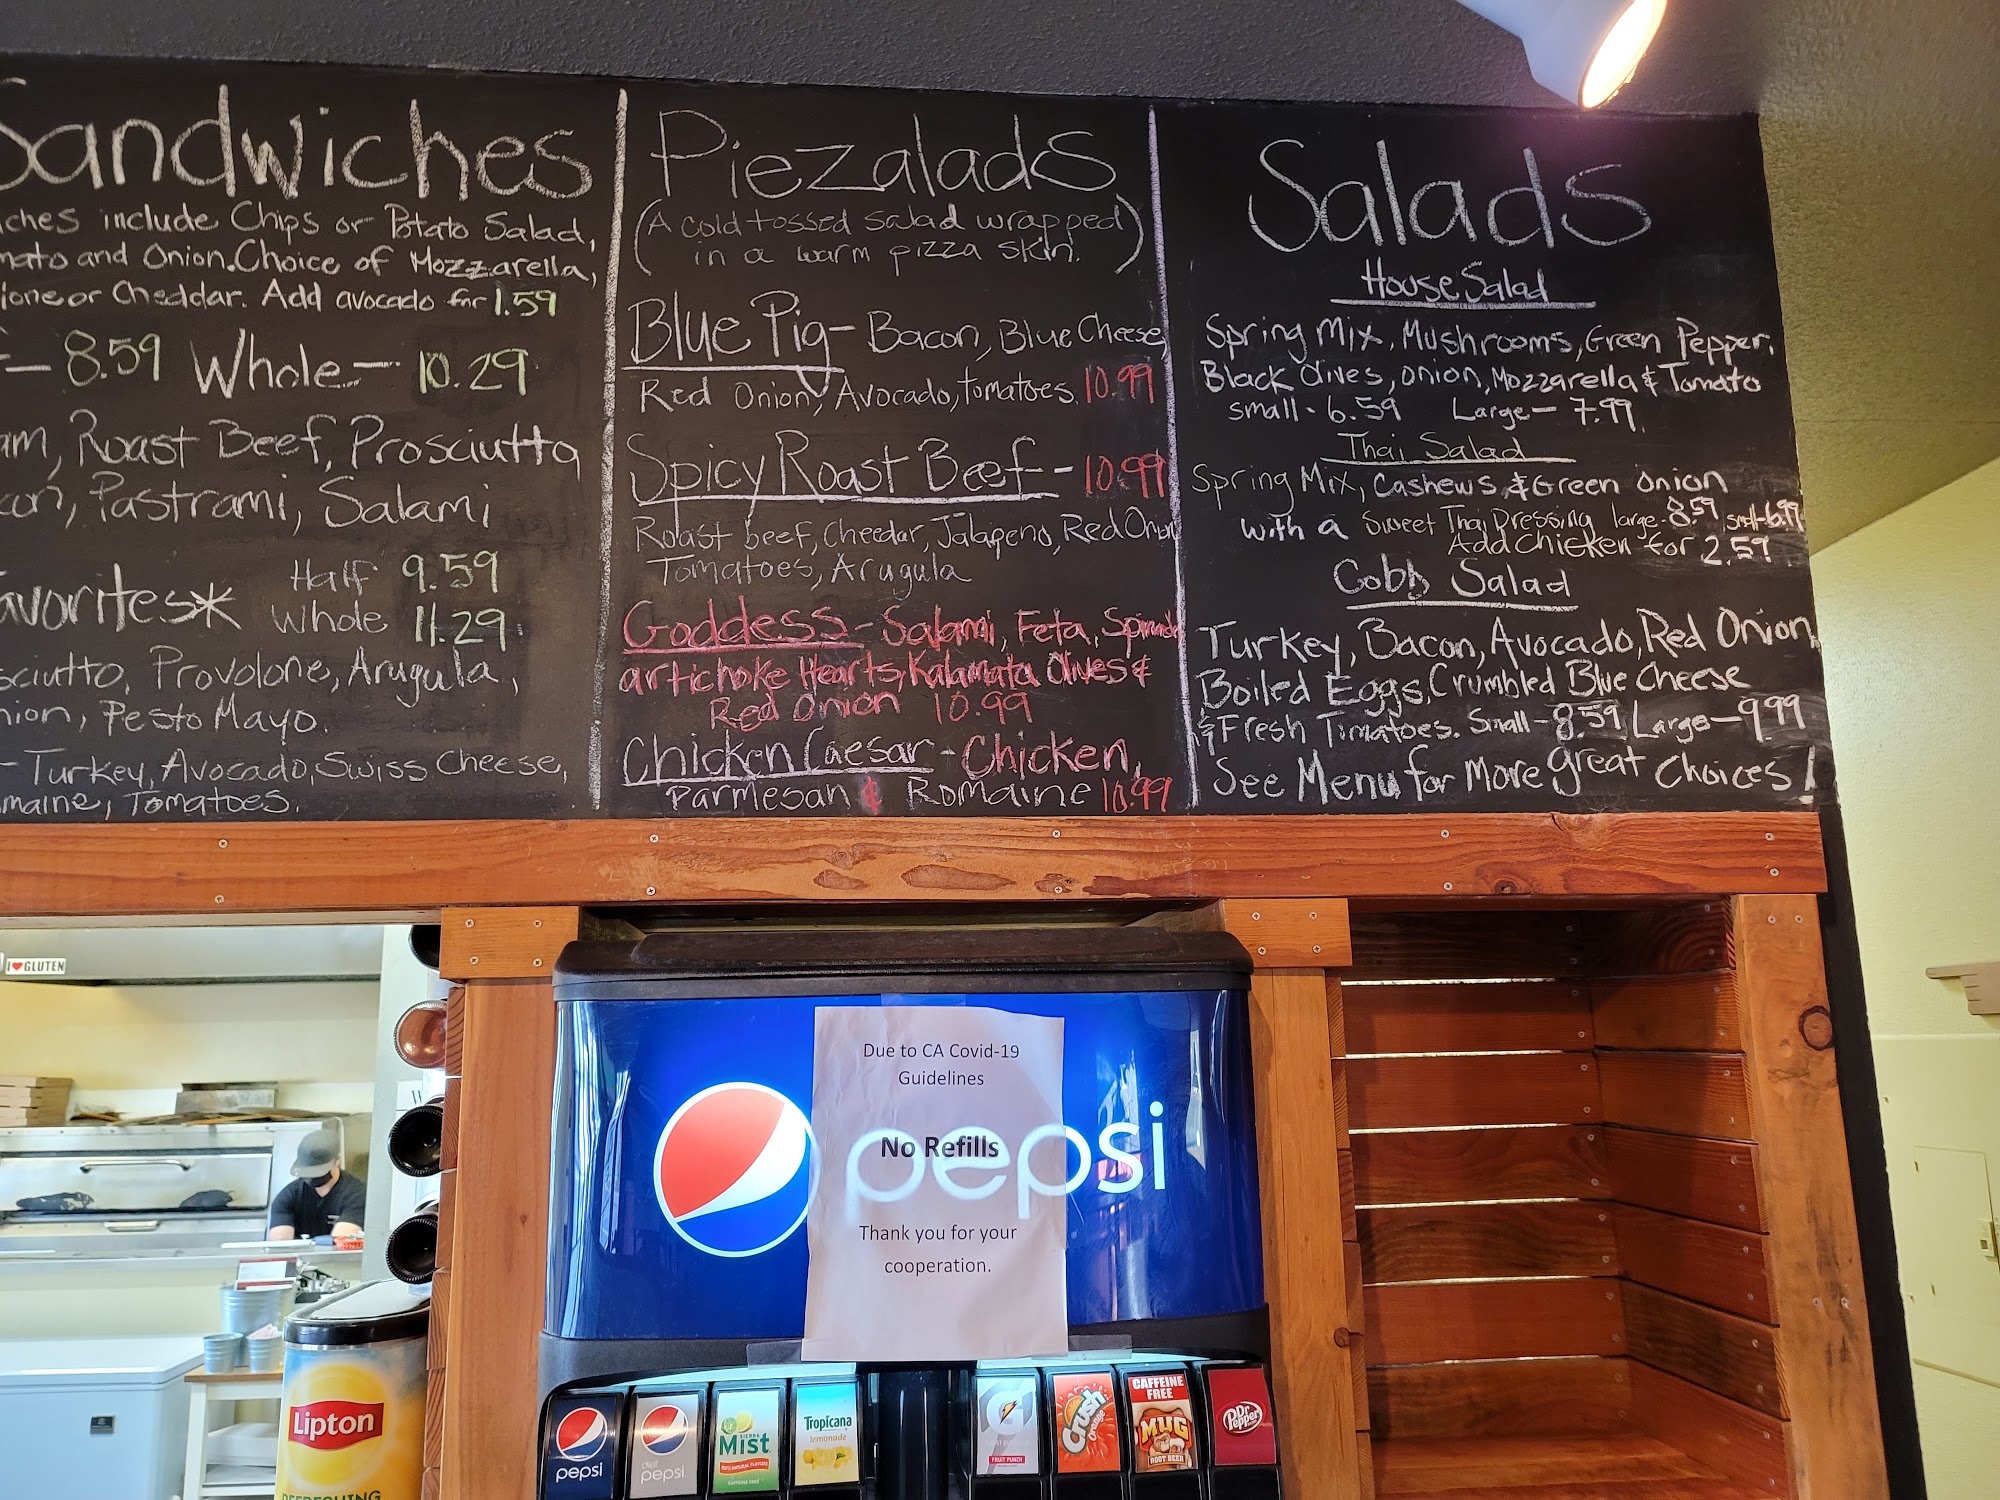 Sandwiches
include Chips or Potato Salad,
and Onion. Choice of Mozzarella,
or Cheddar. Add avocado for 1.59
8.59 Whole - 10.29
Roast Beef, Prosciutto
Pastrami, Salami
Half 9.59
Whole 11.29
Provolone, Arugula,
Pesto Mayo.
- Turkey, Avocado, Swiss Cheese,
Tomatoes.
Piezalads
(A cold tossed salad wrapped
in a warm pizza skin.)
Blue Pig - Bacon, Blue Cheese,
Red Onion, Avocado, tomatoes. 10.99
Spicy Roast Beef - 10.99
Roast beef, Cheedar, Jalapeno, Red Onion
Tomatoes, Arugula
Goddess - Salami, Feta,
artichoke Hearts, Kalamata Olives &
Red Onion 10.99
Chicken Caesar - Chicken,
Parmesan & Romaine 10.99
Salads
House Salad
Spring Mix, Mushrooms, Green Pepper,
Black Olives, onion, Mozzarella & Tomato
small - 6.59 Large - 7.99
Thai Salad
Spring Mix, Cashews, & Green Onion
with a Sweet Thai Dressing large - 8.59 small - 6.99
Add Chicken for 2.59
Cobb Salad
Turkey, Bacon, Avocado, Red Onion,
Boiled Eggs, Crumbled Blue Cheese
& Fresh Tomatoes. Small - 8.59 Large - 9.99
See Menu for More great Choices!
I ♥ GLUTEN
Due to CA Covid-19
Guidelines
No Refills
Thank you for your
cooperation.
pepsi
Lipton
REFRESHING
pepsi
diet
pepsi
SIERRA
Mist
CAFFEINE FREE
Tropicana
lemonade
G
FRUIT PUNCH
Crush
Orange
CAFFEINE
FREE
MUG
ROOT BEER
Dr Pepper